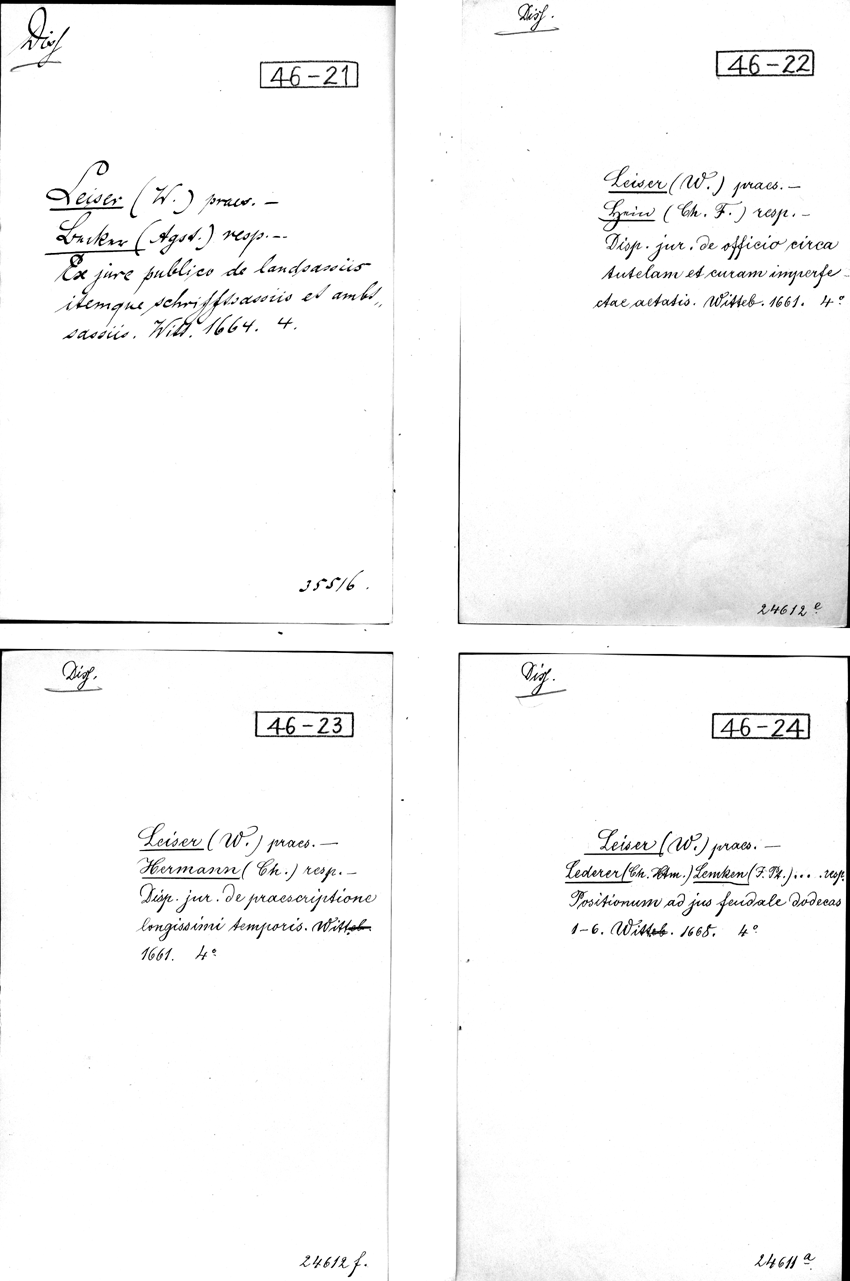 Diss
46-21
Leiser (W.) praes. —
Becker (Agst.) resp. —
Ex jure publico de landsassiis
itemque schrifftsassiis et ambt„
sassiis. Witt. 1664. 4.
35516.
Diss.
46-22
Leiser (W.) praes. —
Hein (Ch. F.) resp. —
Disp. jur. de officio circa
tutelam et curam imperfe-
ctae aetatis. Witteb. 1661. 4°
24612 e
Diss.
46-23
Leiser (W.) praes. —
Hermann (Ch.) resp. —
Disp. jur. de praescriptione
longissimi temporis. Witteb.
1661. 4°
24612 f.
Diss.
46-24
Leiser (W.) praes. —
Lederer (Ch. Htm.) Lemken (F. Pt.) ... resp.
Positionum ad jus feudale dodecas
1-6. Witteb. 1665. 4°
24611 a